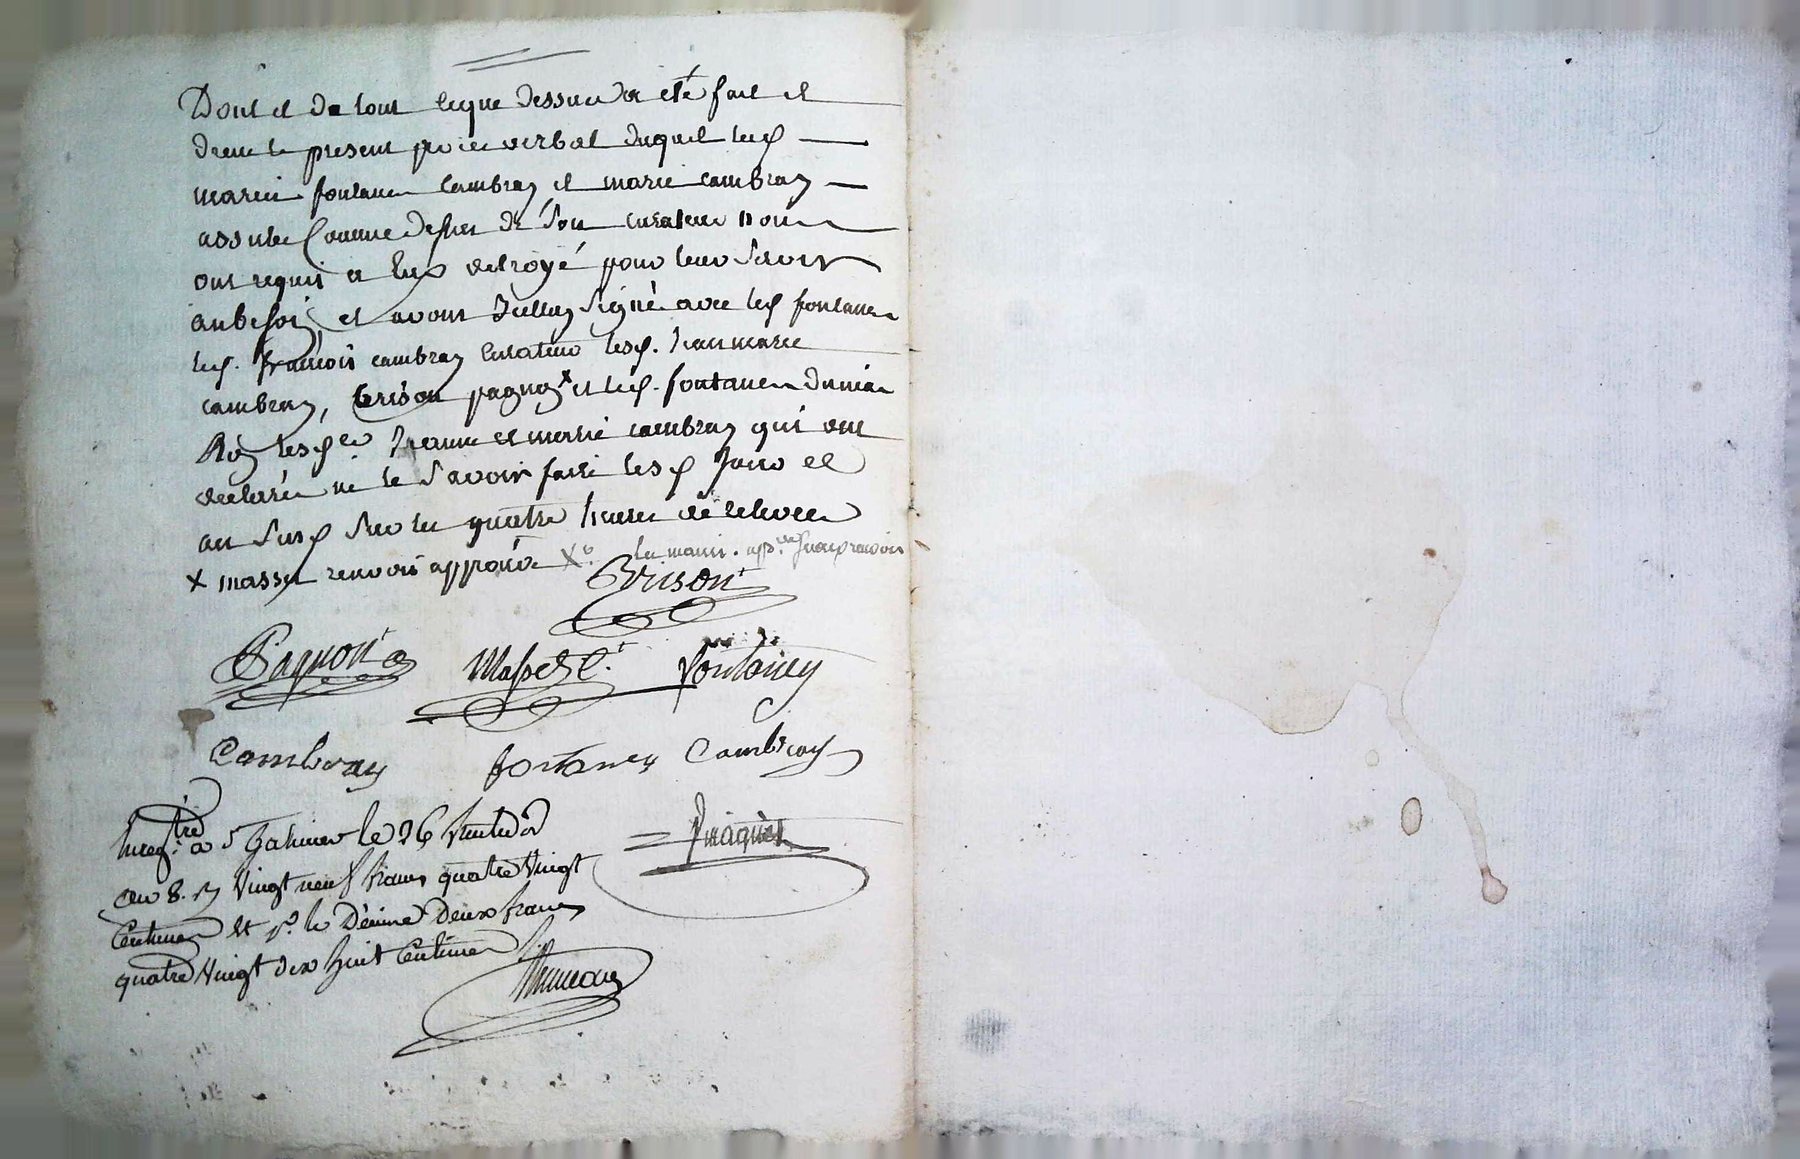 Dont et de tout ce que dessus a été fait et
dressé le present procès verbal duquel lesd
mariés fontaney Cambray et marie cambray
assistée Comme dessus de Son curateur nous
ont requis a Eux octroyé pour leur Servir
au besoin et avons Icelluy Signé avec led fontaney
led. françois cambray Curateur lesd. Jean marie
cambray, Brison pagnon x et led. fontaney
lesd es. Jeanne et marie cambray qui ont
declaré ne le Savoir faire lesd Jour et
an Susd Sur les quatre heures de relevée
x masset renvois approuvé
Brison
Pagnon Masset Fontaney
Cambray fontaney Cambray
Enregtré a St Galmier le 26 Vend
an 8. Vingt neuf francs quatre Vingt
Centimes et pr. le Décime Deux francs
quatre Vingt dix huit Centimes